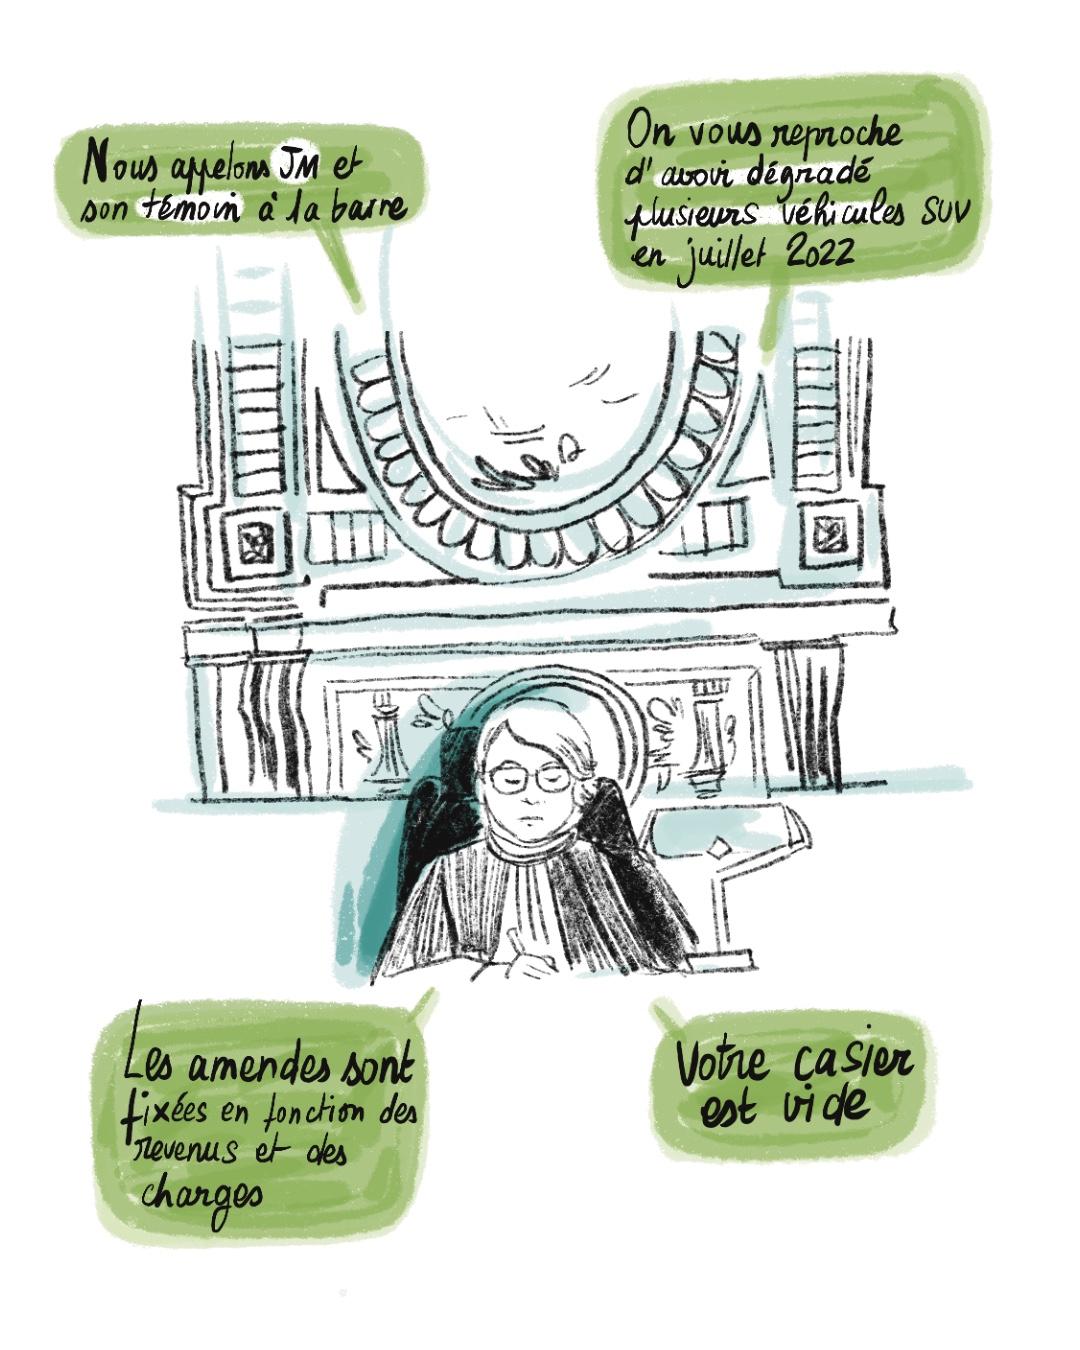 Nous appelons JM et
son témoin à la barre
On vous reproche
d'avoir dégradé
plusieurs véhicules SUV
en juillet 2022
Les amendes sont
fixées en fonction des
revenus et des
charges
Votre casier
est vide